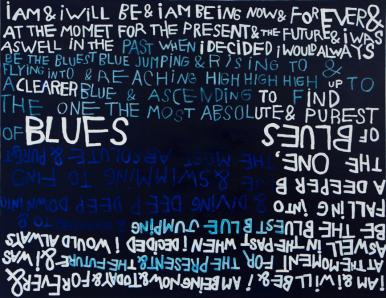 iAM & iWiLL BE & iAM BEiNG NOW & FOREVER &
AT THE MOMET FOR THE PRESENT & THE FUTURE & iWAS
ASWELL iN THE PAST WHEN iDECiDED iWOULD ALWAYS
BE THE BLUEST BLUE JUMPiNG & RiSiNG TO &
FLYiNG iNTO & REACHiNG HiGH HiGH HiGH UP TO
A CLEARER BLUE & ASCENDiNG TO FiND
THE ONE THE MOST ABSOLUTE & PUREST
OF BLUES
OF BLUES
THE ONE, THE MOST ABSOLUTE & PUREST
A DEEPER B & SWiMMiNG TO FiND
FALLiNG iNTO DEEP DEEP DOWN iNTO
BE THE BLUEST BLUE JUMPiNG
ASWELL iN THE PAST WHEN i DECiDED i WOULD ALWAYS
AT THE MOMENT FOR THE PRESENT & THE FUTURE & i WAS
iAM & i WiLL BE & iAM BEiNG NOW & FOREVER &